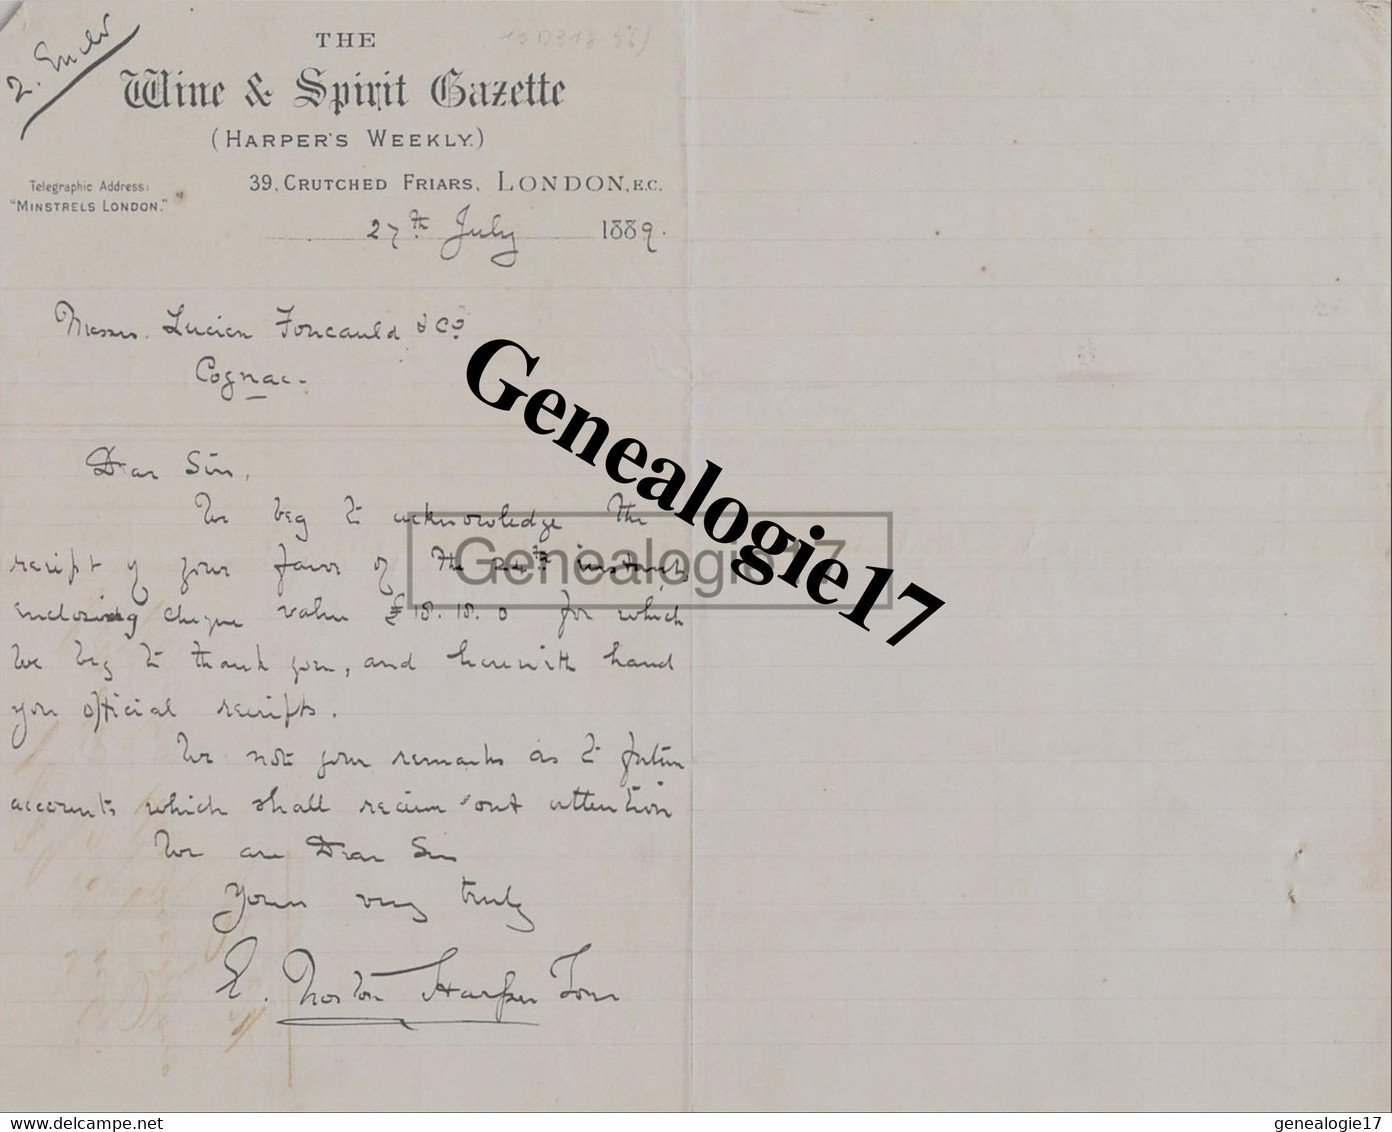 2. Encls
THE
Wine & Spirit Gazette
(HARPER'S WEEKLY.)
39, CRUTCHED FRIARS, LONDON, E.C.
Telegraphic Address:
"MINSTRELS LONDON."
27th July 1889.
Messrs. Lucien Foucauld & Co.
Cognac.
Dear Sirs,
We beg to acknowledge the
receipt of your favor of the 24th instant,
enclosing cheque value £18.18.0 for which
we beg to thank you, and herewith hand
you official receipts.
We note your remarks as to future
accounts which shall receive our attention
We are Dear Sirs
Yours very truly
E. Norton Harper
Genealogie17
Genealogis17
delcampe.net
genealogie17